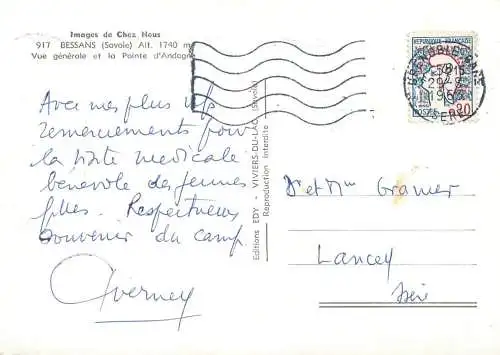 Images de Chez Nous
917 BESSANS (Savoie) Alt. 1740 m
Vue générale et la Pointe d'Andagne
Avec mes plus vifs
remerciements pour
la visite medicale
bénévole des jeunes
filles. Respectueux
souvenir du camp.
Editions EDY - VIVIERS-DU-LAC (Savoie)
Reproduction Interdite
REPUBLIQUE FRANÇAISE
POSTES
Dr et Mme Gramer
Lancey
Isère